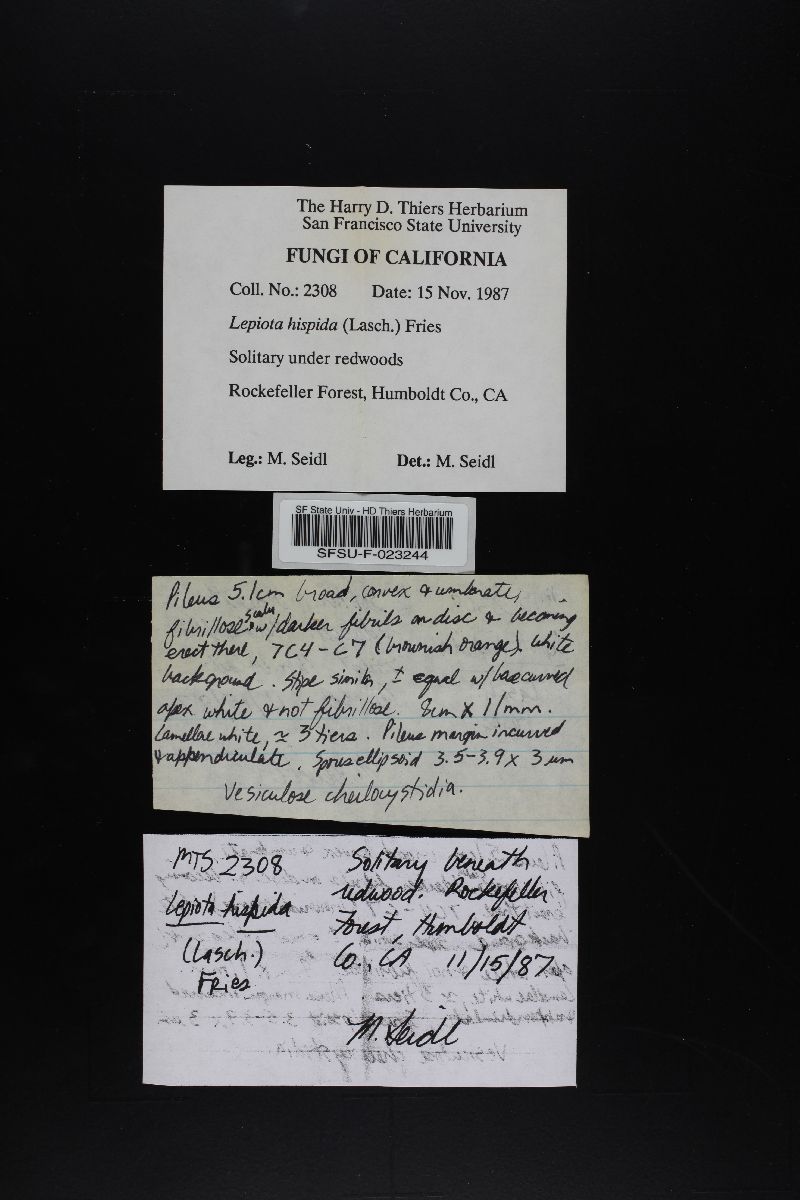 The Harry D. Thiers Herbarium
San Francisco State University
FUNGI OF CALIFORNIA
Coll. No.: 2308 Date: 15 Nov. 1987
Lepiota hispida (Lasch.) Fries
Solitary under redwoods
Rockefeller Forest, Humboldt Co., CA
Leg.: M. Seidl Det.: M. Seidl
SF State Univ - HD Thiers Herbarium
SFSU-F-023244
Pileus 5.1cm broad, convex & umbonate,
fibrillose scales w/darker fibrils on disc & becoming
erect there, 7C4-C7 (brownish orange). White
background. Stipe similar, ± equal w/base curved
apex white & not fibrillose. 8cm X 11mm.
Lamellae white, ≈ 3 tiers. Pileus margin incurved
& appendiculate. Spores ellipsoid 3.5-3.9 x 3 um
Vesiculose cheilocystidia.
MTS 2308
Lepiota hispida
(Lasch.)
Fries
Solitary beneath
redwood. Rockefeller
Forest, Humboldt
Co., CA 11/15/87
M. Seidl